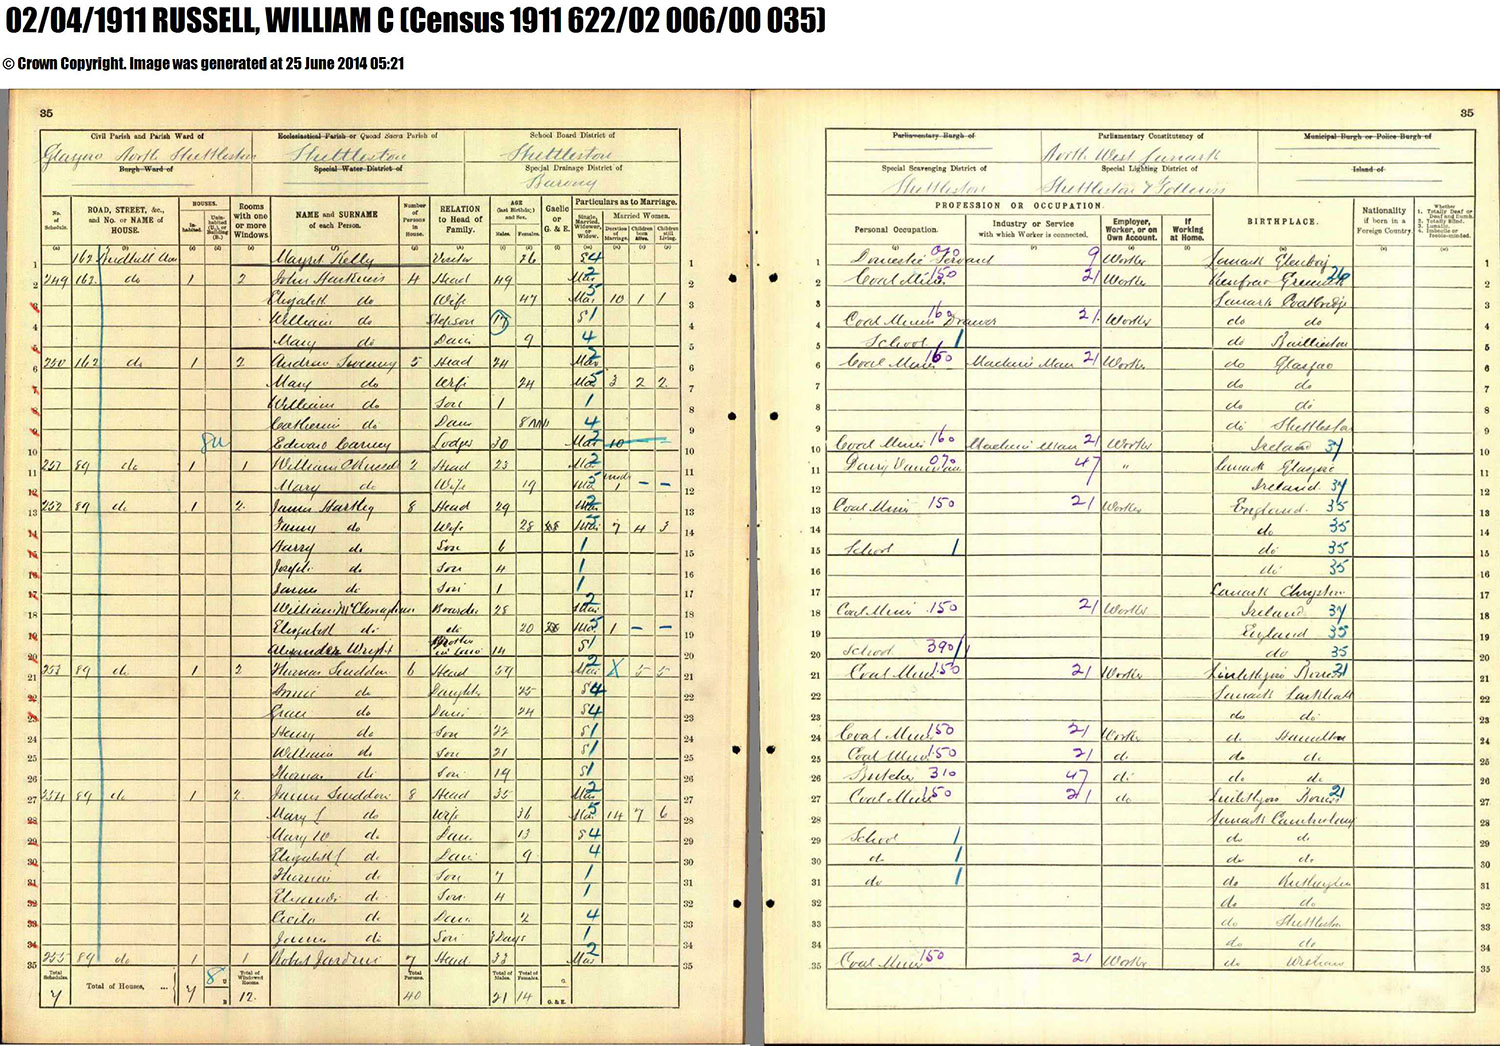 02/04/1911 RUSSELL, WILLIAM C (Census 1911 622/02 006/00 035)
© Crown Copyright. Image was generated at 25 June 2014 05:21
35
Civil Parish and Parish Ward of
Glasgow North Shettleston
Burgh Ward of
Ecclesiastical Parish or Quoad Sacra Parish of
Shettleston
Special Water District of
School Board District of
Shettleston
Special Drainage District of
Barony
No. of Schedule.
ROAD, STREET, &c., and No. or NAME of HOUSE.
HOUSES.
Inhabited
Uninhabited (U.) or Building (B.)
Rooms with one or more Windows
NAME and SURNAME of each Person.
Number of Persons in House.
RELATION to Head of Family.
AGE (last Birthday) and Sex.
Males. Females.
Gaelic or G. & E.
Particulars as to Marriage.
Single, Married, Widower, or Widow.
Married Women.
Duration of Marriage. Children born Alive. Children still Living.
1 162 Kelly Visitor 26 S 4
2 249 162 do 1 2 John 4 Head 49 Mar 2
3 Elizabeth do Wife 47 Mar 5 10 1 1
4 William do Stepson 17 S 1
5 Mary do Daur 9 4
6 250 162 do 1 2 Andrew Sweeney 5 Head 24 Mar 2
7 Mary do Wife 24 Mar 5 3 2 2
8 William do Son 1 1
9 Catherine do Daur 8 4
10 8u Edward Carney Lodger 30 Mar 2 10 – –
11 251 89 do 1 1 William 2 Head 23 Mar 2
12 Mary do Wife 19 Mar 5 under 1 – –
13 252 89 do 1 2 James Hartley 8 Head 29 Mar 2
14 Fanny do Wife 28 Mar 5 7 4 3
15 Harry do Son 6 1
16 Joseph do Son 4 1
17 James do Son 1 1
18 William McClenaghan Boarder 28 Mar 2
19 Elizabeth do do 20 Mar 5 1 – –
20 Alexander Wright Brother in law 14 S 1
21 253 89 do 1 2 Thomas Sneddon 6 Head 59 Mar 2 X 5 5
22 Annie do Daughter 25 S 4
23 Grace do Daur 24 S 4
24 Henry do Son 22 S 1
25 William do Son 21 S 1
26 Thomas do Son 19 S 1
27 254 89 do 1 2 James Sneddon 8 Head 35 Mar 2
28 Mary L do Wife 36 Mar 5 14 7 6
29 Mary W do Daur 13 S 4
30 Elizabeth L do Daur 9 4
31 Thomas do Son 7 1
32 do Son 4 1
33 Cecila do Daur 2 4
34 James do Son 3 Days 1
35 255 89 do 1 1 Robert Jardine 7 Head 33 Mar 2
Total Schedules. 7
Total of Houses, ... 7 8 U B
Total of Windowed Rooms 12.
Total Persons. 40
Total of Males. 21
Total of Females. 14
G. G. & E.
35
Parliamentary Burgh of
Special Scavenging District of
Shettleston
Parliamentary Constituency of
North West Lanark
Special Lighting District of
Shettleston & Tollcross
Municipal Burgh or Police Burgh of
Island of
PROFESSION OR OCCUPATION.
Personal Occupation.
Industry or Service with which Worker is connected.
Employer, Worker, or on Own Account.
If Working at Home.
BIRTHPLACE.
Nationality if born in a Foreign Country.
Whether 1. Totally Deaf or Deaf and Dumb. 2. Totally Blind. 3. Lunatic. 4. Imbecile or feeble-minded.
1 Domestic Servant 9 Worker Lanark Glenboig
2 Coal Miner 150 21 Worker Renfrew Greenock 26
3 Lanark Coatbridge
4 Coal Miner Drawer 160 21 Worker do do
5 School 1 do Baillieston
6 Coal Miner 160 Machine Man 21 Worker do Glasgow
7 do do
8 do do
9 do Shettleston
10 Coal Miner 160 Machine Man 21 Worker Ireland 34
11 Dairy Vanman 070 47 " Lanark Glasgow
12 Ireland 34
13 Coal Miner 150 21 Worker England 35
14 do 35
15 School 1 do 35
16 do 35
17 Lanark Chryston
18 Coal Miner 150 21 Worker Ireland 34
19 England 35
20 School 390/1 do 35
21 Coal Miner 150 21 Worker Linlithgow Boness 21
22 Lanark Larkhall
23 do do
24 Coal Miner 150 21 Worker do Hamilton
25 Coal Miner 150 21 do do do
26 Butcher 310 47 do do do
27 Coal Miner 150 21 do Linlithgow Boness 21
28 Lanark Cambuslang
29 School 1 do do
30 do 1 do do
31 do 1 do Rutherglen
32 do do
33 do Shettleston
34 do do
35 Coal Miner 150 21 Worker do Wishaw